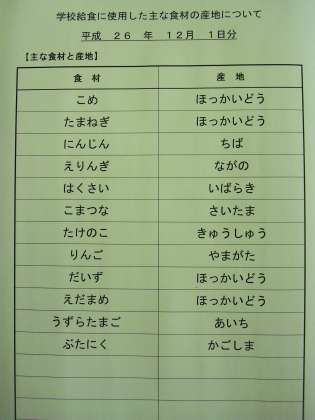 学校給食に使用した主な食材の産地について
平成 26 年 12月 1日分
【主な食材と産地】
食 材 産 地
こめ ほっかいどう
たまねぎ ほっかいどう
にんじん ちば
えりんぎ ながの
はくさい いばらき
こまつな さいたま
たけのこ きゅうしゅう
りんご やまがた
だいず ほっかいどう
えだまめ ほっかいどう
うずらたまご あいち
ぶたにく かごしま